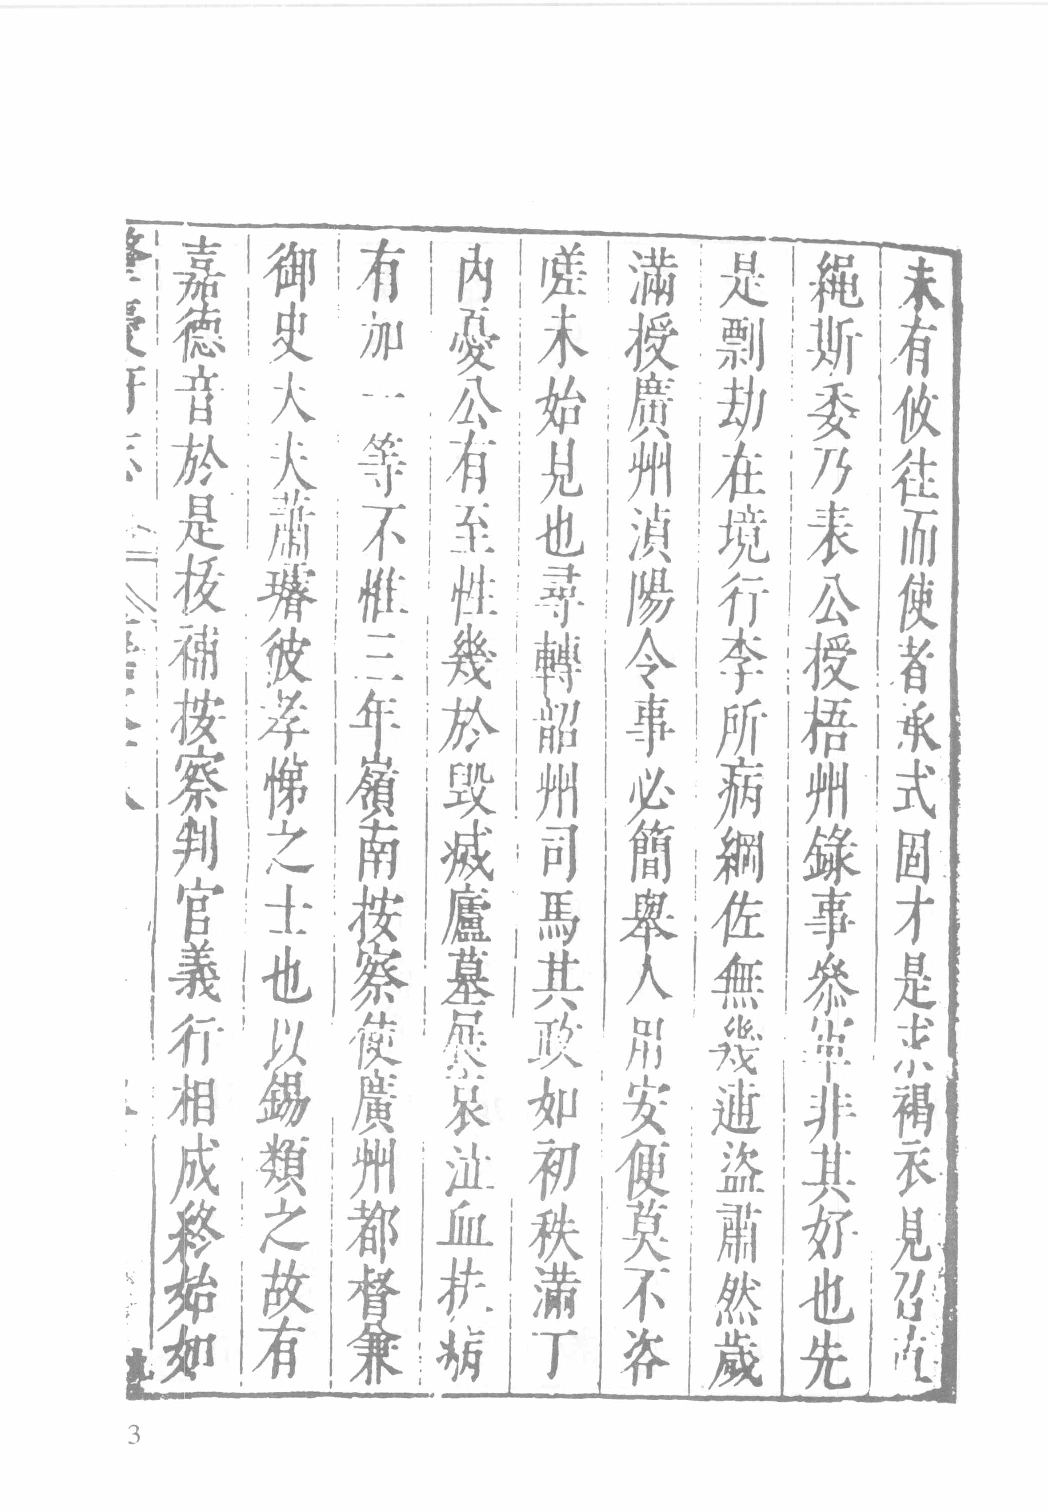 未有攸往而使者承式固才是求褐衣見召直
繩斯委乃表公授梧州錄事參軍非其好也先
是剽劫在境行李所病綱佐無幾逋盜肅然歲
滿授廣州湞陽令事必簡舉人用安便莫不咨
嗟未始見也尋轉韶州司馬其政如初秩滿丁
內憂公有至性幾於毀滅廬墓展哀泣血扶病
有加一等不惟三年嶺南按察使廣州都督兼
御史大夫蕭璿彼孝悌之士也以錫類之故有
嘉德音於是挍補按察判官義行相成終始如
3